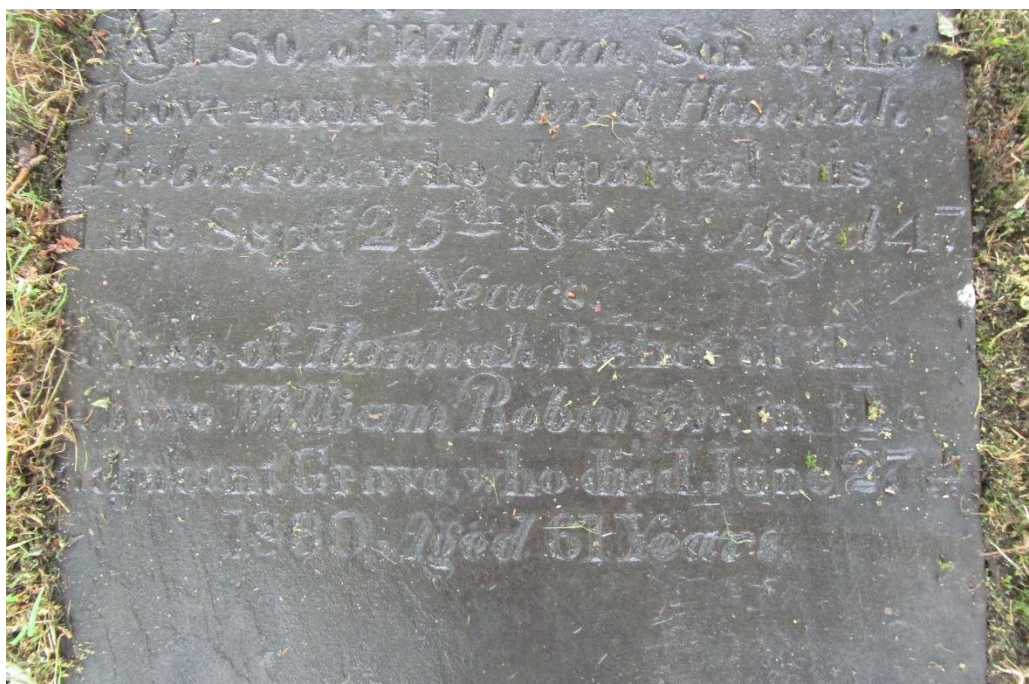 ALSO, of William, Son of the
above-named John & Hannah
Robinson, who departed this
Life Septr. 25th 1844. Aged 47
Years.
Also, of Hannah, Relict of the
above William Robinson, in the
adjacent Grave, who died June 27th
1860. Aged 61 Years.